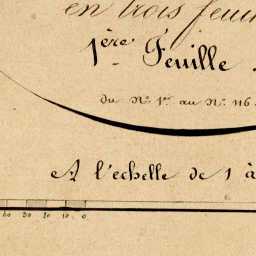 en trois feuil
1ère Feuille.
du N.º 1.er au N.º 116.
A l'echelle de 1 à
30 20 10 0